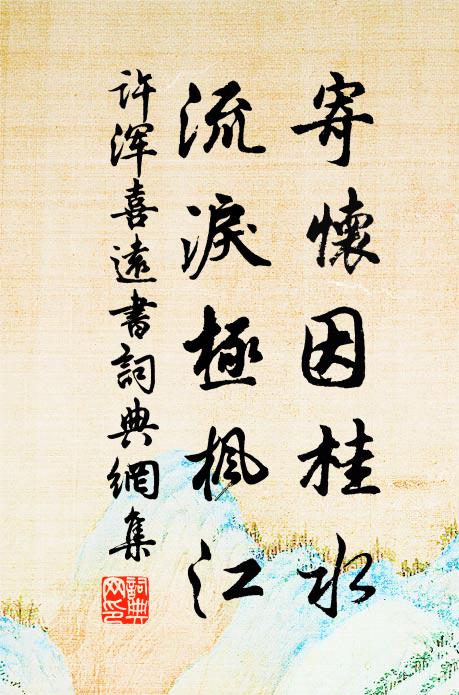 寄懷因桂水
流淚極楓江
许浑喜遠書詞典網集
詞典